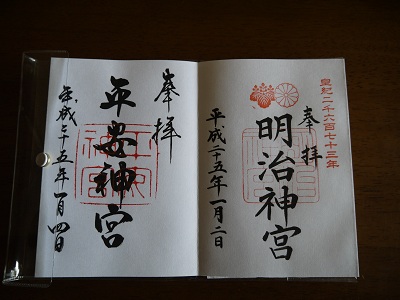 皇紀二千六百七十三年
奉拝
明治神宮
平成二十五年一月二日
奉拝
平安神宮
平成二十五年一月四日